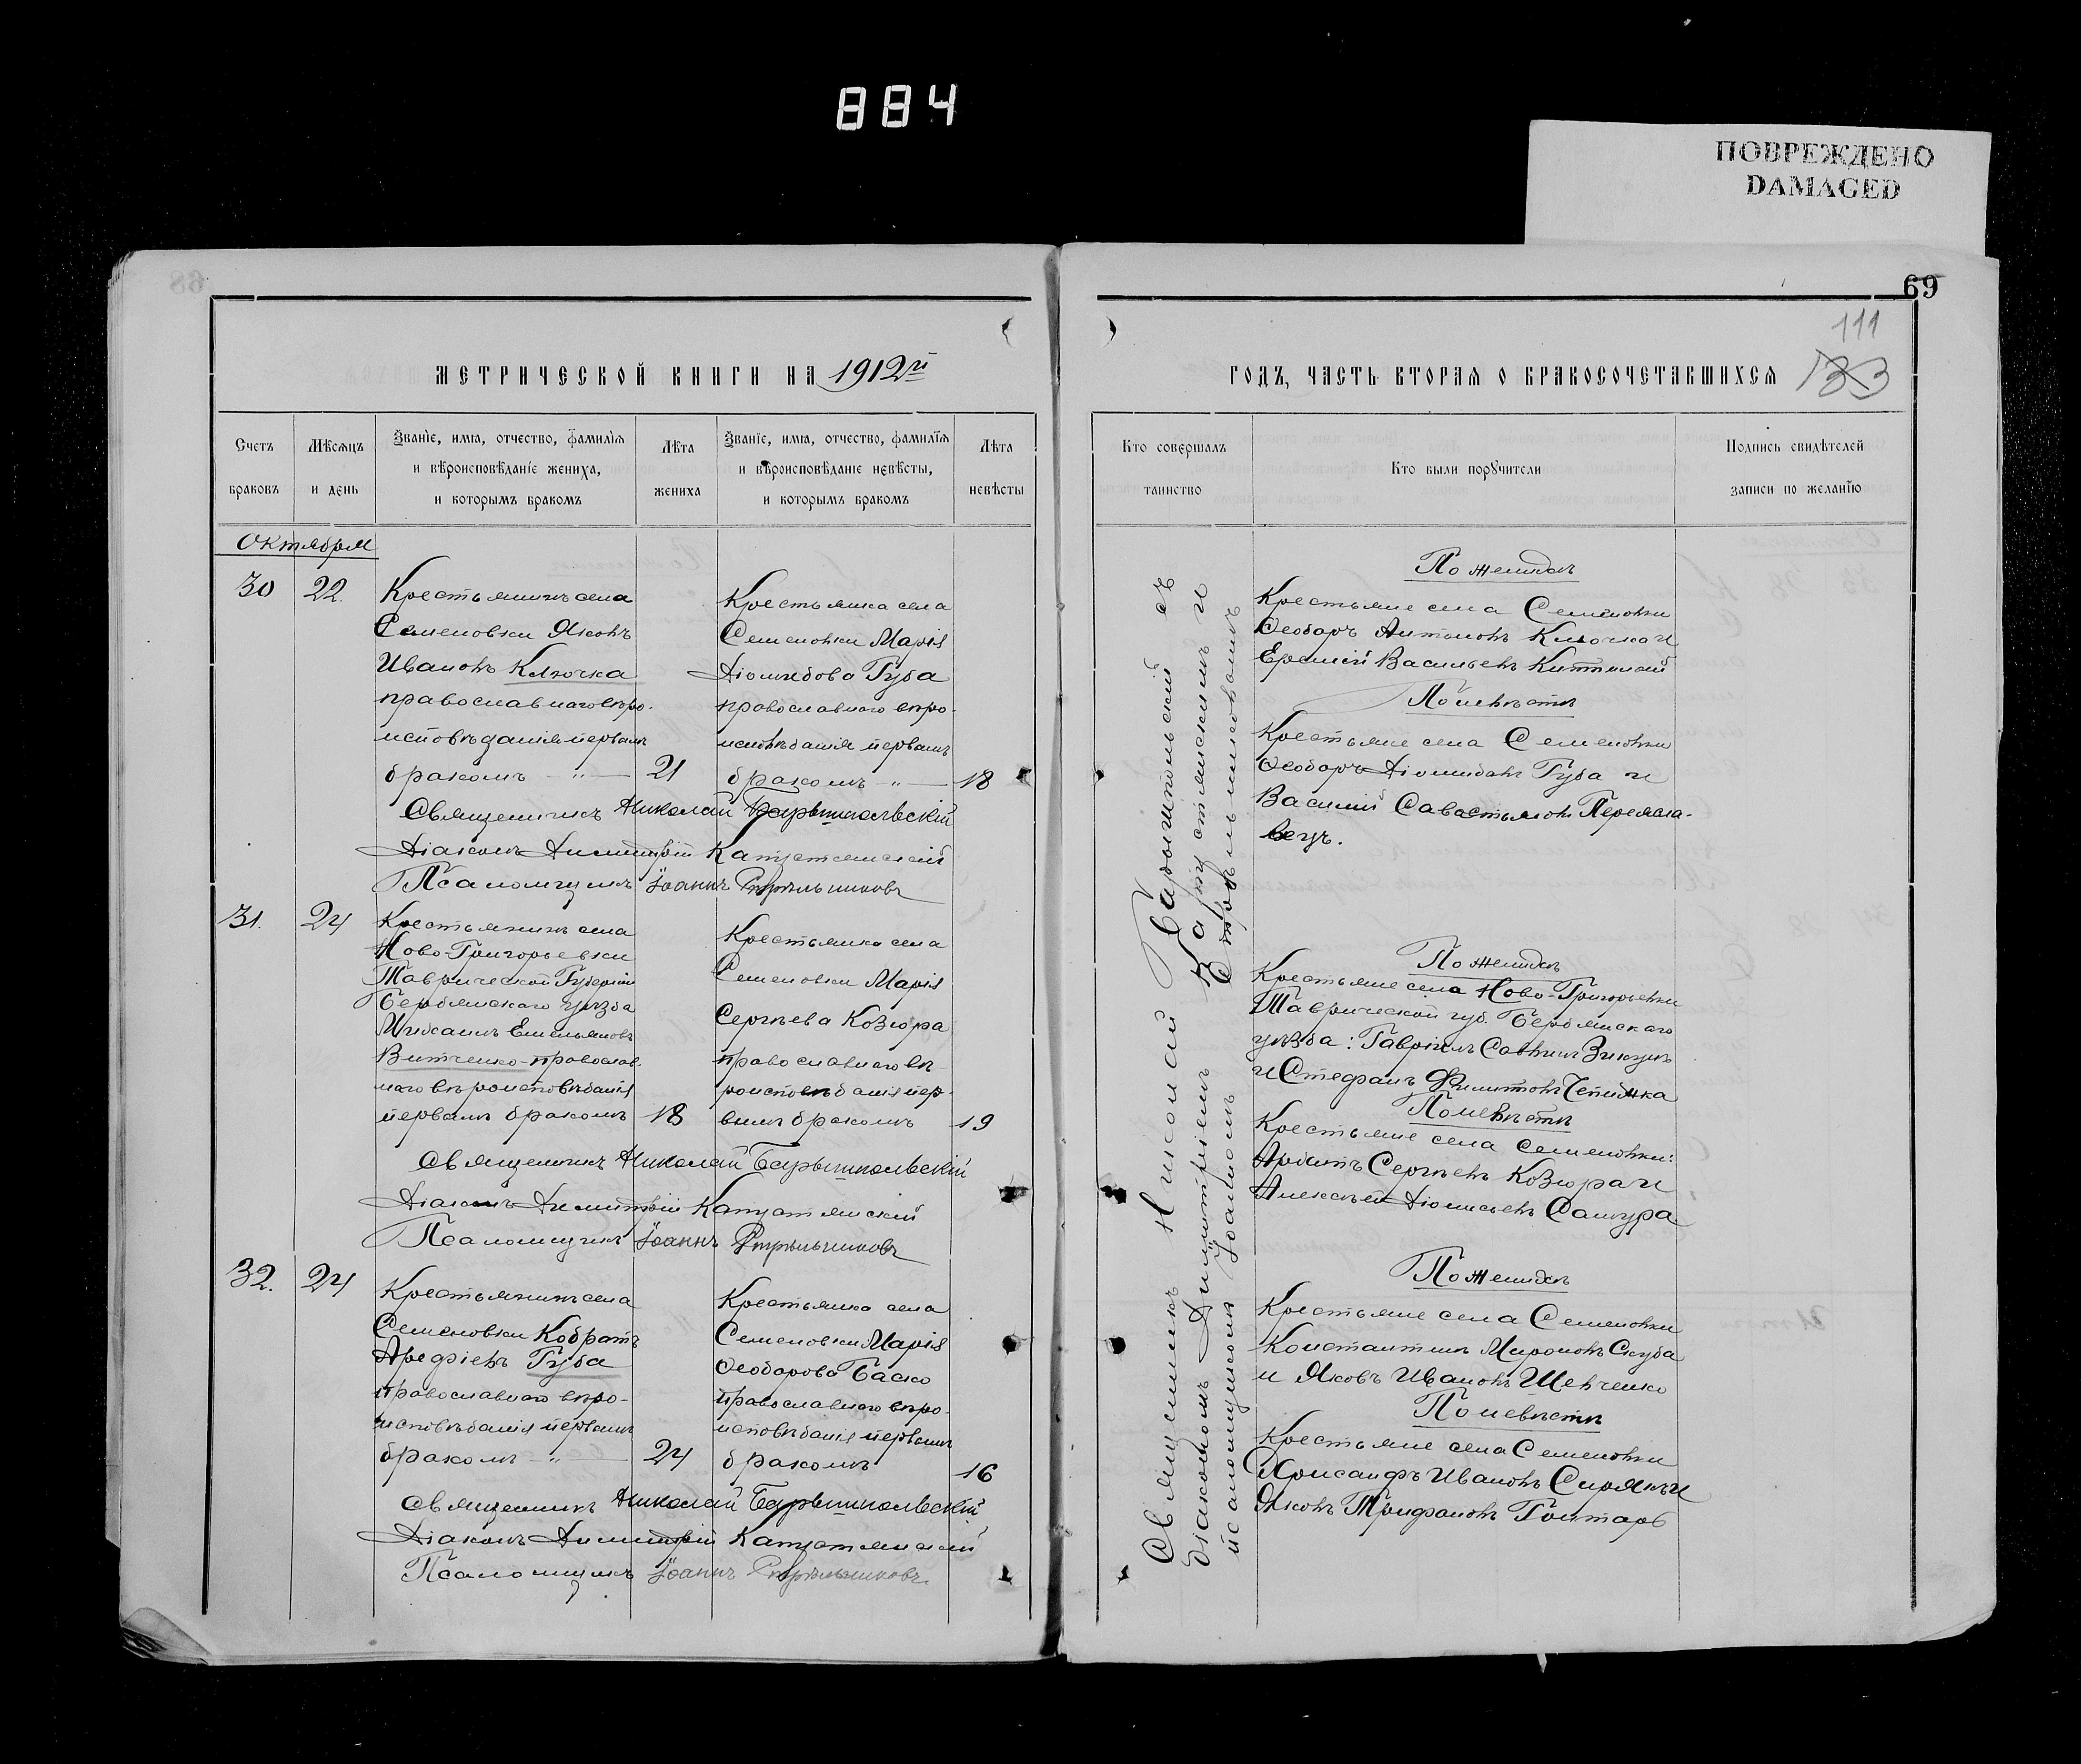 884
ПОВРЕЖДЕНО
DAMAGED
69
111
133
МЕТРИЧЕСКОЙ КНИГИ НА 1912й
ГОДЪ, ЧАСТЬ ВТОРАЯ О БРАКОСОЧЕТАВШИХСЯ
Счетъ браковъ
Мѣсяцъ и день
Званіе, имя, отчество, фамилія и вѣроисповѣданіе жениха, и которымъ бракомъ
Лѣта жениха
Званіе, имя, отчество, фамилія и вѣроисповѣданіе невѣсты, и которымъ бракомъ
Лѣта невѣсты
Кто совершалъ таинство
Кто были поручители
Подпись свидѣтелей записи по желанію
Октября
30
22.
Крестьянинъ села
Семеновки Яковъ
Ивановъ Клочка
православнаго вѣро-
исповѣданія первымъ
бракомъ — " —
21
Крестьянка села
Семеновки Марія
Діомидова Губа
православнаго вѣро-
исповѣданія первымъ
бракомъ — " —
18
Священникъ Николай Барышпольскій
Діаконъ Димитрій Капустянскій
Псаломщикъ Іоаннъ Стрѣльниковъ
31.
24
Крестьянинъ села
Ново-Григорьевки
Таврической Губерніи
Бердянскаго уѣзда
Михаилъ Емельяновъ
Витченко-православ-
наго вѣроисповѣданія
первымъ бракомъ
18
Крестьянка села
Семеновки Марія
Сергѣева Козюра
православнаго вѣ-
роисповѣданія пер-
вымъ бракомъ
19
Священникъ Николай Барышпольскій
Діаконъ Димитрій Капустянскій
Псаломщикъ Іоаннъ Стрѣльниковъ
32.
24
Крестьянинъ села
Семеновки Кодратъ
Арефіевъ Губа
православнаго вѣро-
исповѣданія первымъ
бракомъ — " —
24
Крестьянка села
Семеновки Марія
Ѳеодорова Баско
православнаго вѣро-
исповѣданія первымъ
бракомъ
16
Священникъ Николай Барышпольскій
Діаконъ Димитрій Капустянскій
Псаломщикъ Іоаннъ Стрѣльниковъ.
Священникъ Николай Барышпольскій съ
діакономъ Димитріемъ Капустянскимъ и
псаломщикомъ Іоанномъ Стрѣльниковымъ
По женихѣ
Крестьяне села Семеновки
Ѳеодоръ Антоновъ Клочка и
Еремій Васильевъ
По невѣстѣ
Крестьяне села Семеновки
Ѳеодоръ Діомидовъ Губа и
Василій Савастьяновъ Переясла-
вецъ.
По женихѣ
Крестьяне села Ново-Григорьевки
Таврической губ. Бердянскаго
уѣзда: Гавріилъ Саввинъ
и Стефанъ Филиповъ Чепижка
По невѣстѣ
Крестьяне села Семеновки:
Сергѣевъ Козюра и
Алексѣй Діонисьевъ
По женихѣ
Крестьяне села Семеновки
Константинъ Мироновъ Скуба
и Яковъ Ивановъ Шевченко
По невѣстѣ
Крестьяне села Семеновки
Хрисанфъ Ивановъ Сирякъ и
Яковъ Трифановъ Гонтарь